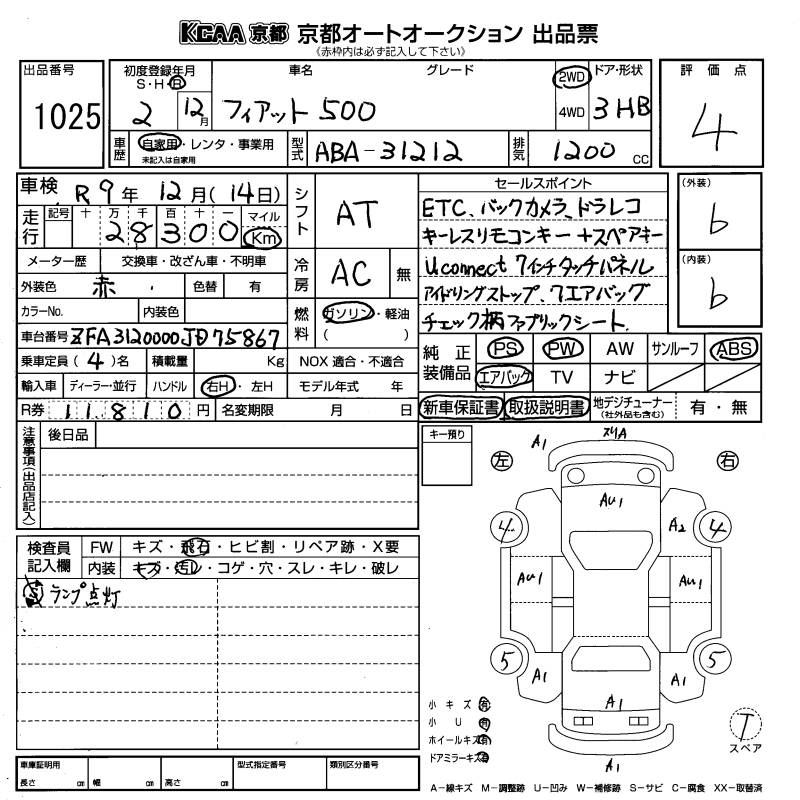 KCAA 京都 京都オートオークション 出品票
《赤枠内は必ず記入して下さい》
出品番号
1025
初度登録年月
S・H・R
2 12月
車名 グレード
フィアット 500
2WD
4WD
ドア・形状
3HB
評価点
4
車歴
自家用・レンタ・事業用
未記入は自家用
型式
ABA-31212
排気
1200 CC
車検 R9年 12月(14日)
走行
記号 十 万 千 百 十 一 マイル
28300 Km
メーター歴 交換車・改ざん車・不明車
外装色 赤 色替 有
カラーNo. 内装色
車台番号 ZFA3120000JD75867
乗車定員 (4)名 積載量 Kg
輸入車 ディーラー・並行 ハンドル 右H・左H
R券 11,810円 名変期限 月 日
シフト
AT
冷房
AC 無
燃料
ガソリン・軽油
( )
NOX 適合・不適合
モデル年式 年
セールスポイント
ETC、バックカメラ、ドラレコ
キーレスリモコンキー+スペアキー
Uconnect 7インチタッチパネル
アイドリングストップ、7エアバッグ
チェック柄ファブリックシート.
(外装)
b
(内装)
b
純正装備品
PS PW AW サンルーフ ABS
エアバック TV ナビ
新車保証書 取扱説明書 地デジチューナー
(社外品も含む) 有・無
注意事項(出品店記入)
後日品
キー預り
検査員記入欄
FW キズ・飛石・ヒビ割・リペア跡・X要
内装 キズ・汚レ・コゲ・穴・スレ・キレ・破レ
ランプ点灯
左
右
A1
スリA
AU1
A2
4
4
AU1
AU1
5
5
A1
A1
A1
A1
小キズ 有
小U 有
ホイールキズ 有
ドアミラーキズ 有
T
スペア
車庫証明用
長さ cm 幅 cm 高さ cm
型式指定番号
類別区分番号
A-線キズ M-調整跡 U-凹み W-補修跡 S-サビ C-腐食 XX-取替済